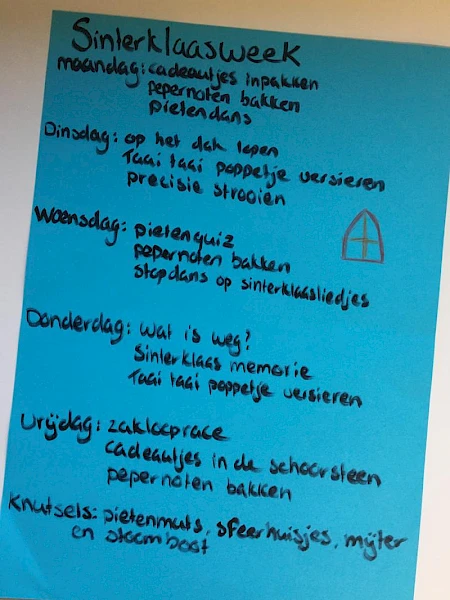 Sinterklaasweek
maandag: cadeautjes inpakken
pepernoten bakken
pietendans
Dinsdag: op het dak lopen
Taai taai poppetje versieren
precisie strooien
Woensdag: pietenquiz
pepernoten bakken
stopdans op sinterklaasliedjes
Donderdag: Wat is weg?
Sinterklaas memorie
Taai taai poppetje versieren
Vrijdag: zaklooprace
cadeautjes in de schoorsteen
pepernoten bakken
Knutsels: pietenmuts, sfeerhuisjes, mijter
en stoomboot